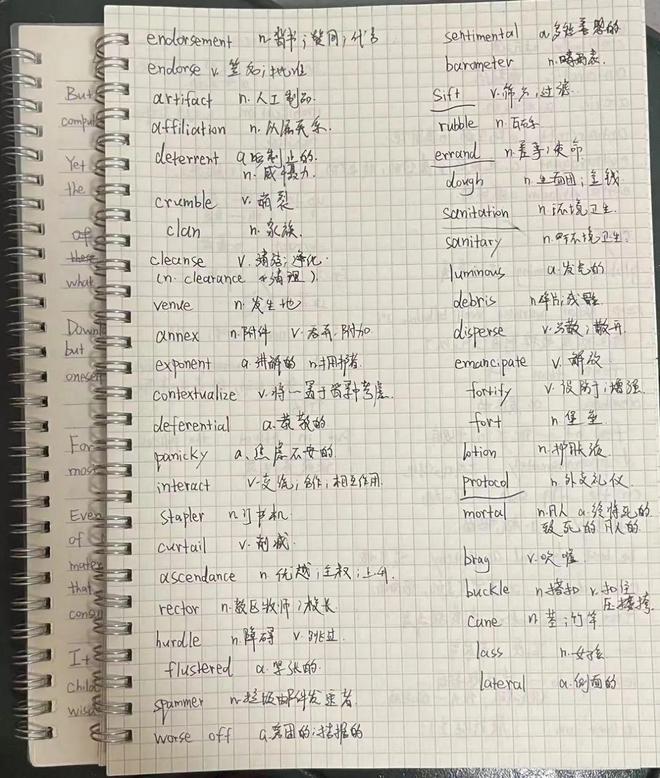 But
compu
Yet
the
of
these
what
Downl
but
oneself
For
most
Even
of
mater
that
consu
It
Child
wisd
endorsement n.背书;赞同;代言
endorse v.签名;批准
artifact n.人工制品.
affiliation n.从属关系.
deterrent a.制止的.
n.威慑力.
crumble v.崩裂
clan n.家族.
cleanse v.清洁;净化.
(n. clearance 清理)
venue n.发生地
annex n.附件 v.吞并.附加
exponent a.讲解的 n.拥护者.
contextualize v.将一置于背景中考虑.
deferential a.恭敬的
panicky a.焦虑不安的
interact v.交流;合作;相互作用.
stapler n.订书机
curtail v.削减
ascendance n.优越;主权;上升.
rector n.教区牧师;校长
hurdle n.障碍 v.跳过.
flustered a.紧张的.
spammer n.垃圾邮件发送者
worse off a.贫困的;拮据的
sentimental a.多愁善感的
barometer n.晴雨表.
sift v.筛分;过滤.
rubble n.瓦砾
errand n.差事;使命
dough n.生面团;金钱
sanitation n.环境卫生.
sanitary n.环境卫生.
luminous a.发光的
debris n.碎片;残骸
disperse v.分散;散开
emancipate v.解放
fortify v.设防于;增强
fort n.堡垒
lotion n.护肤液
protocol n.外交礼仪
mortal n.凡人 a.终将死的
致死的 凡人的
brag v.吹嘘
buckle n.搭扣 v.扣住
压
cane n.茎;竹竿
lass n.女孩
lateral a.侧面的